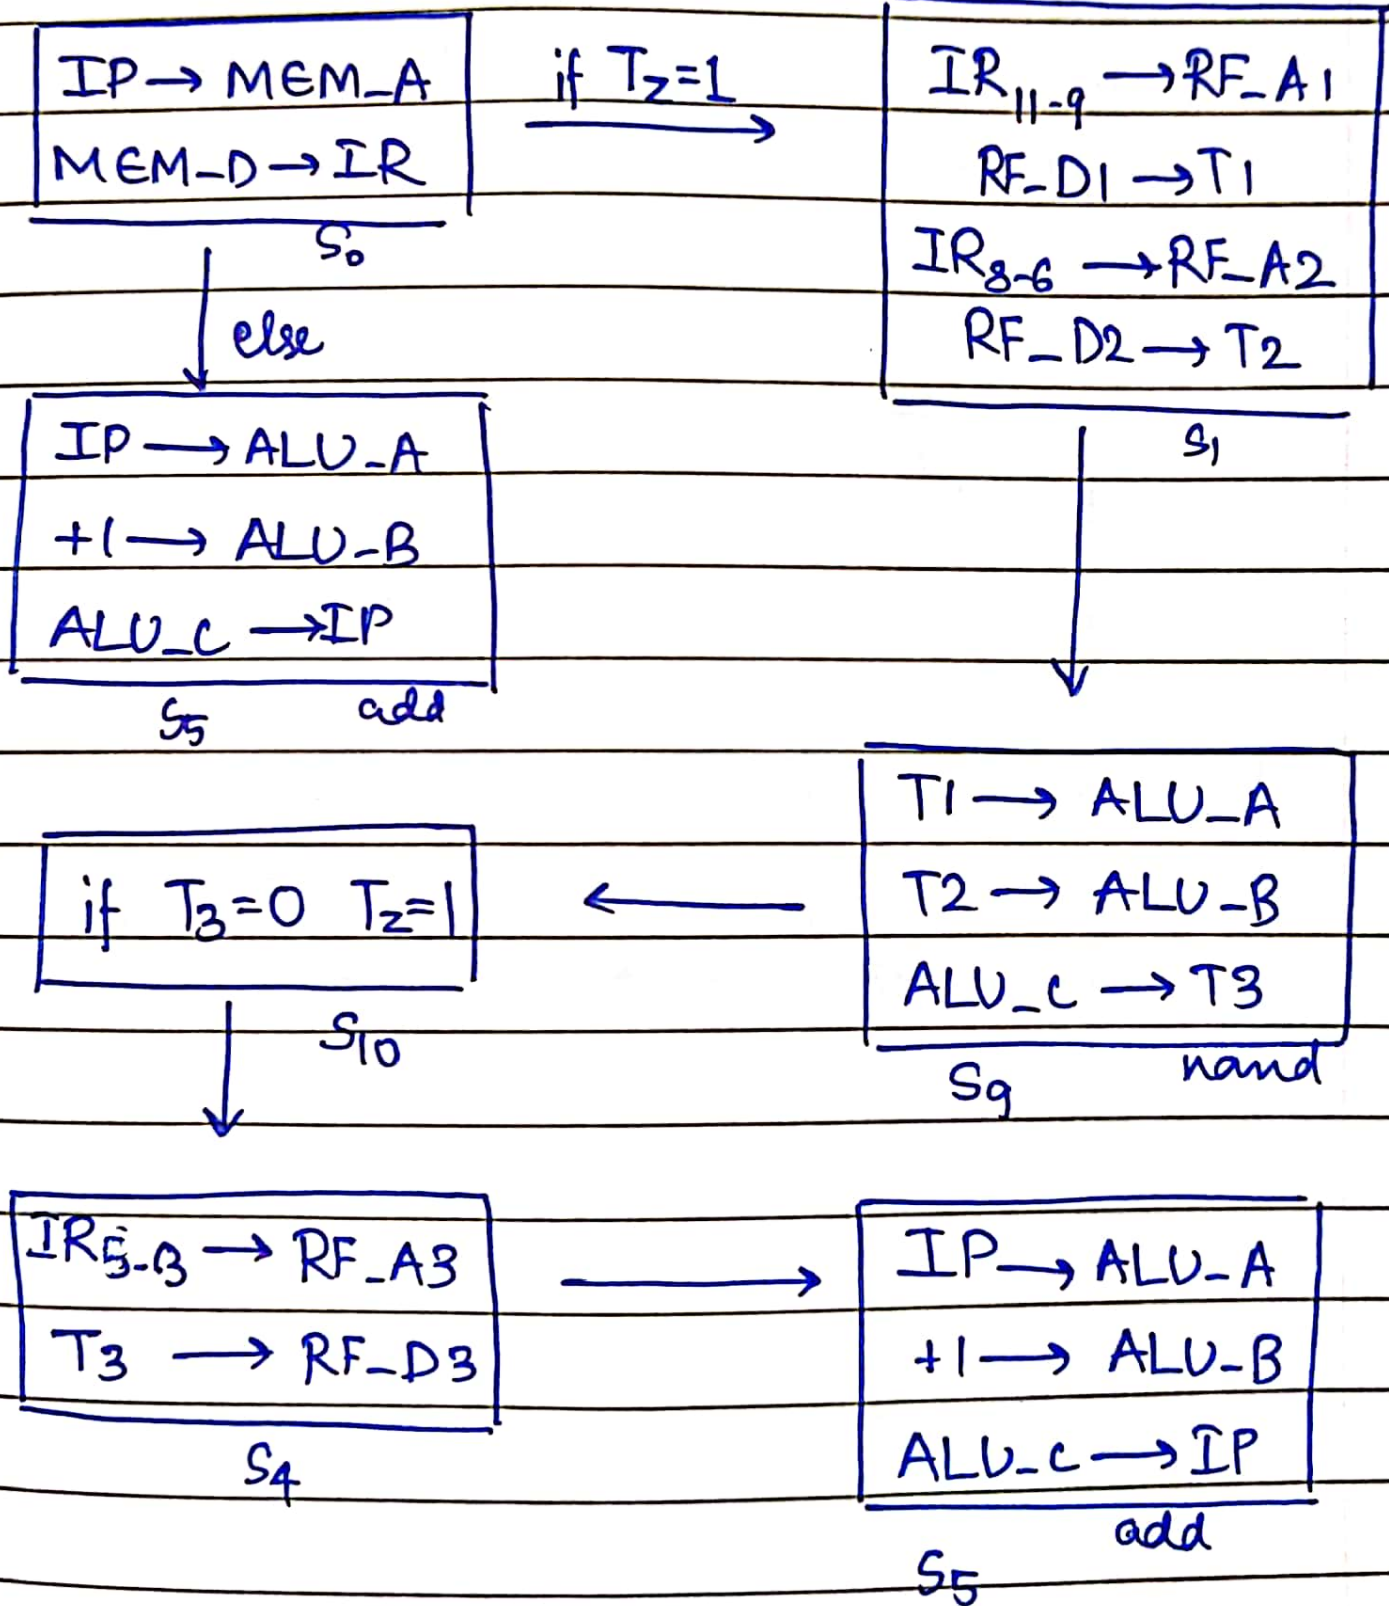 IP → MEM_A
MEM_D → IR
S₀
if T_Z=1
IR₁₁₋₉ → RF_A1
RF_D1 → T1
IR₈₋₆ → RF_A2
RF_D2 → T2
S₁
else
IP → ALU_A
+1 → ALU_B
ALU_C → IP
S₅ add
T1 → ALU_A
T2 → ALU_B
ALU_C → T3
S₉ nand
if T₃=0 T_Z=1
S₁₀
IR₅₋₃ → RF_A3
T3 → RF_D3
S₄
IP → ALU_A
+1 → ALU_B
ALU_C → IP
add
S₅